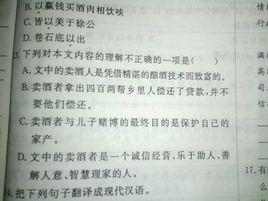 B.以赢钱买酒肉相饮啖
C.皆以美于徐公
D.卷石底以出
3.下列对本文内容的理解不正确的一项是(　　)
A.文中的卖酒人是凭借精湛的酿酒技术而致富的。
B.卖酒者拿出四百两帮乡里人偿还了贷款,并不
要他们偿还。
C.卖酒者与儿子赌博的最终目的是保护自己的
家产。
D.文中的卖酒者是一个诚信经营、乐于助人、善
解人意、智慧理家的人。
4.把下列句子翻译成现代汉语。
17.有